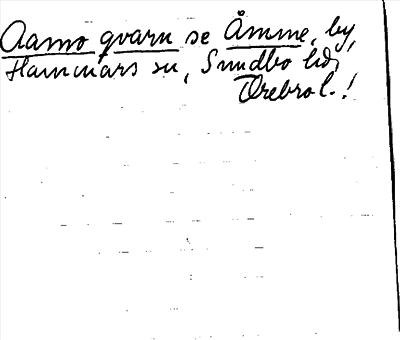 Aamo qvarn se Åmme, by,
Hammars sn, Sundbo hd,
Örebro l.!